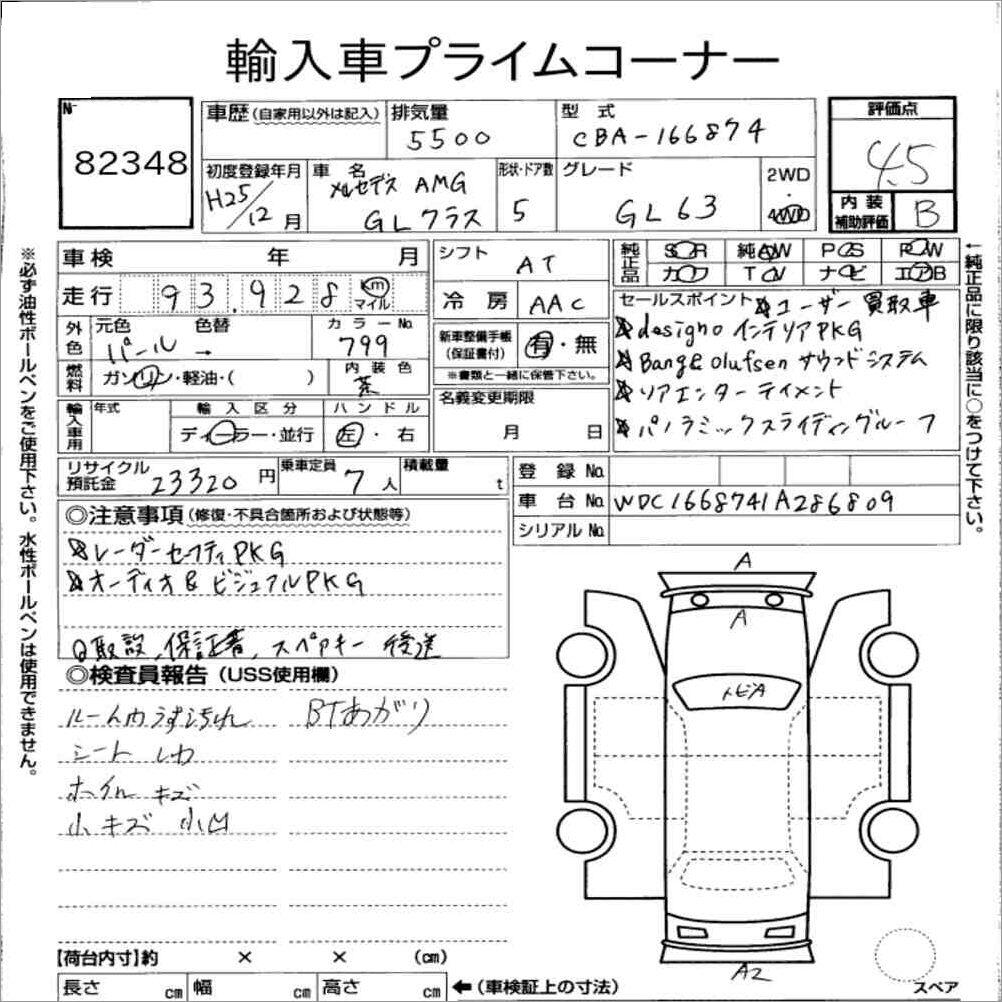 輸入車プライムコーナー
No 82348
車歴(自家用以外は記入) 排気量 5500 型式 CBA-166874 評価点 4.5
初度登録年月 H25/12月 車名 メルセデス AMG GLクラス 形状・ドア数 5 グレード GL63 2WD 4WD 内装補助評価 B
車検 年 月 シフト AT 純正品 SR 純AW PS PW
走行 93,928 km マイル 冷房 AAC カワ TV ナビ エアB
外色 元色 パール 色替 → カラーNo. 799 新車整備手帳(保証書付) 有・無
※書類と一緒に保管下さい。
燃料 ガソリン・軽油・( ) 内装色 茶
輸入車用 年式 輸入区分 ディーラー・並行 ハンドル 左・右 名義変更期限 月 日
セールスポイント ☆ユーザー買取車
☆designo インテリアPKG
☆Bang&Olufsen サウンドシステム
☆リアエンターテイメント
☆パノラミックスライディングルーフ
リサイクル預託金 23320円 乗車定員 7人 積載量 t 登録No.
車台No. WDC1668741A286809
シリアルNo.
◎注意事項(修復・不具合箇所および状態等)
☆レーダーセーフティPKG
☆オーディオ&ビジュアルPKG
取説、保証書、スペアキー 後送
◎検査員報告(USS使用欄)
ルーム内うす汚れ BTあがり
シート
ホイル キズ
小キズ 小凹
A
A
トビA
A2
【荷台内寸】約 × × (cm)
長さ cm 幅 cm 高さ cm ←(車検証上の寸法)
スペア
※必ず油性ボールペンをご使用下さい。水性ボールペンは使用できません。
←純正品に限り該当に○をつけて下さい。